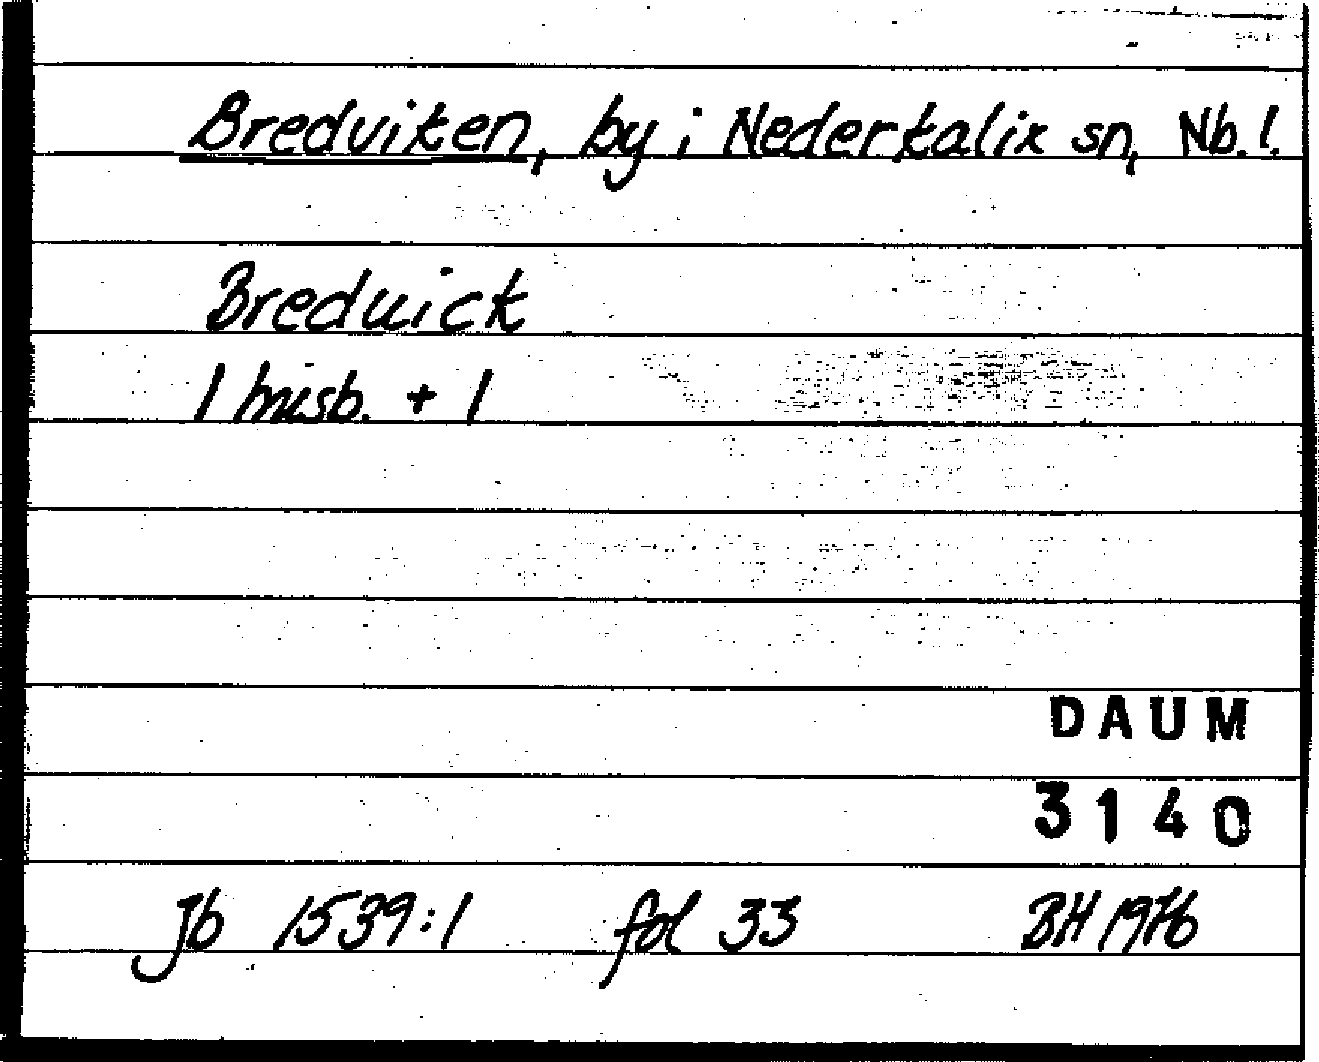 Bredviken, by i Nederkalix sn, Nb. l.
Breduick
DAUM
3140
Jb 1539:1 fol 33 BH 1976